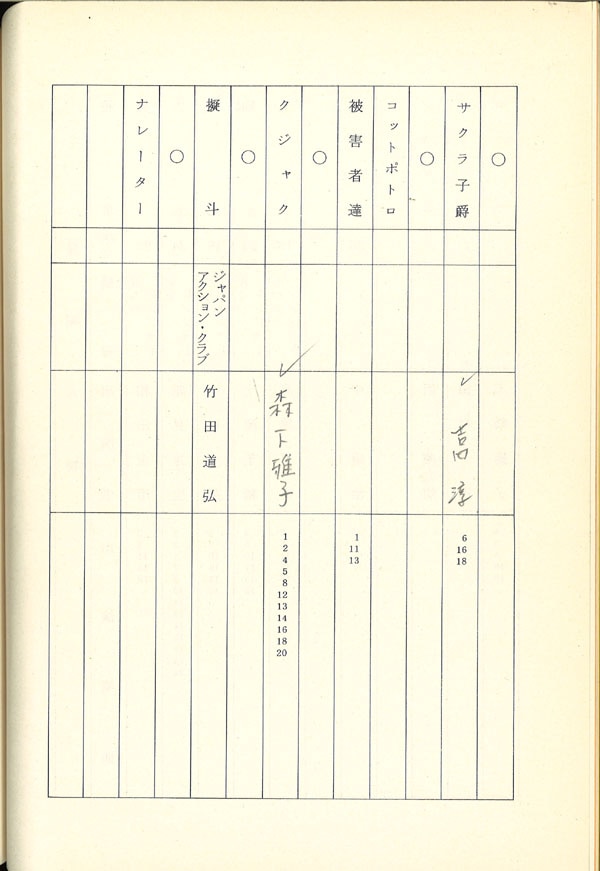 ○
サクラ子爵 ✓ 吉田 淳 6 16 18
○
コットポトロ
被害者達 1 11 13
○
クジャク ✓ 森下雅子 1 2 4 5 8 12 13 14 16 18 20
○
擬斗 ジャパンアクション・クラブ 竹田道弘
○
ナレーター